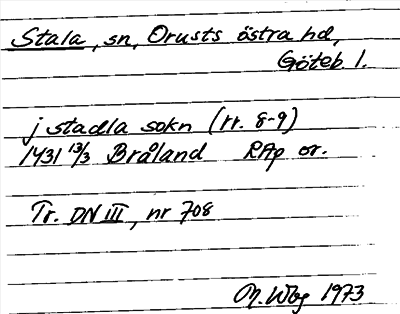 Stala, sn, Orusts östra hd,
Göteb l.
j stadla sokn (rr. 8-9)
1431 13/3 Bråland RAp or.
Tr. DN III, nr 708
1973